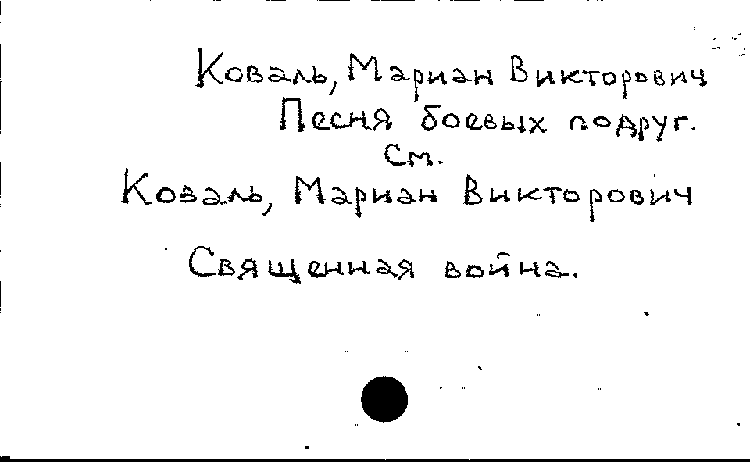 Коваль, Мариан Викторович
Песня боевых подруг.
См.
Коваль, Мариан Викторович
Священная война.